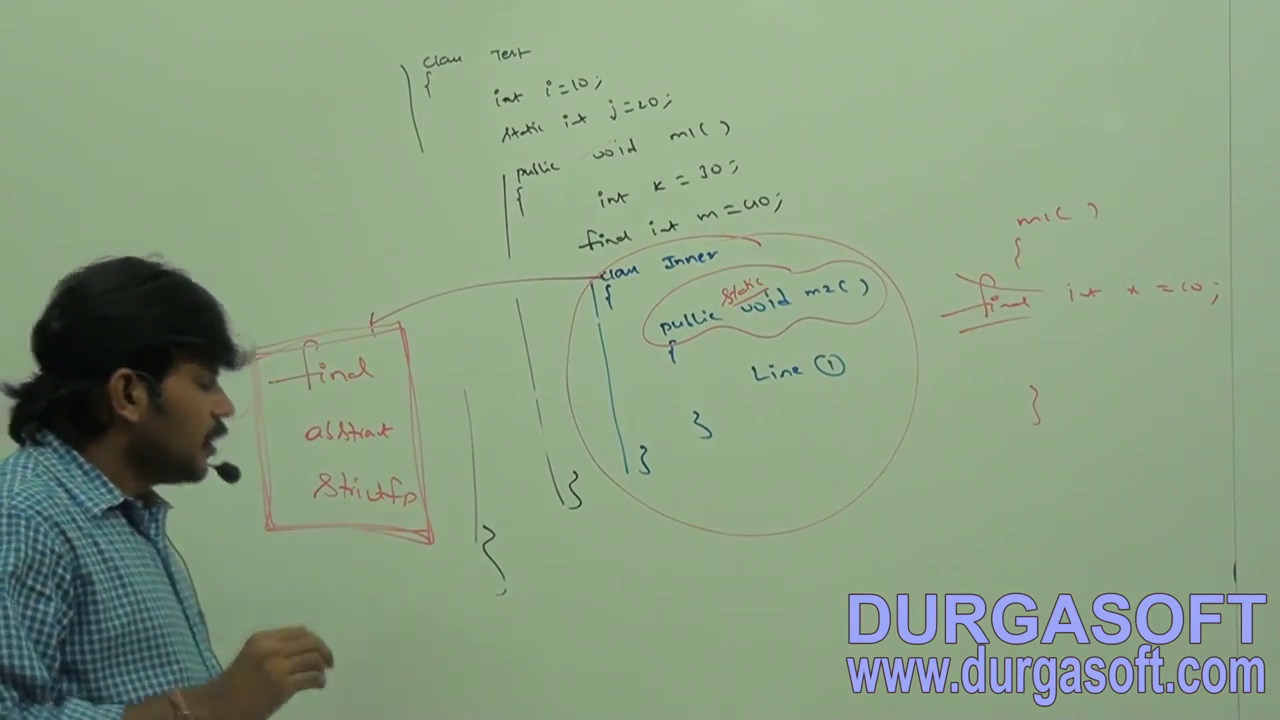 class Test
{
int i=10;
static int j=20;
public void m1( )
{
int k = 30;
final int m=40;
class Inner
{
static
public void m2( )
{
Line 1
}
}
}
}
final
abstract
strictfp
m1( )
{
final int x = 10;
}
DURGASOFT
www.durgasoft.com